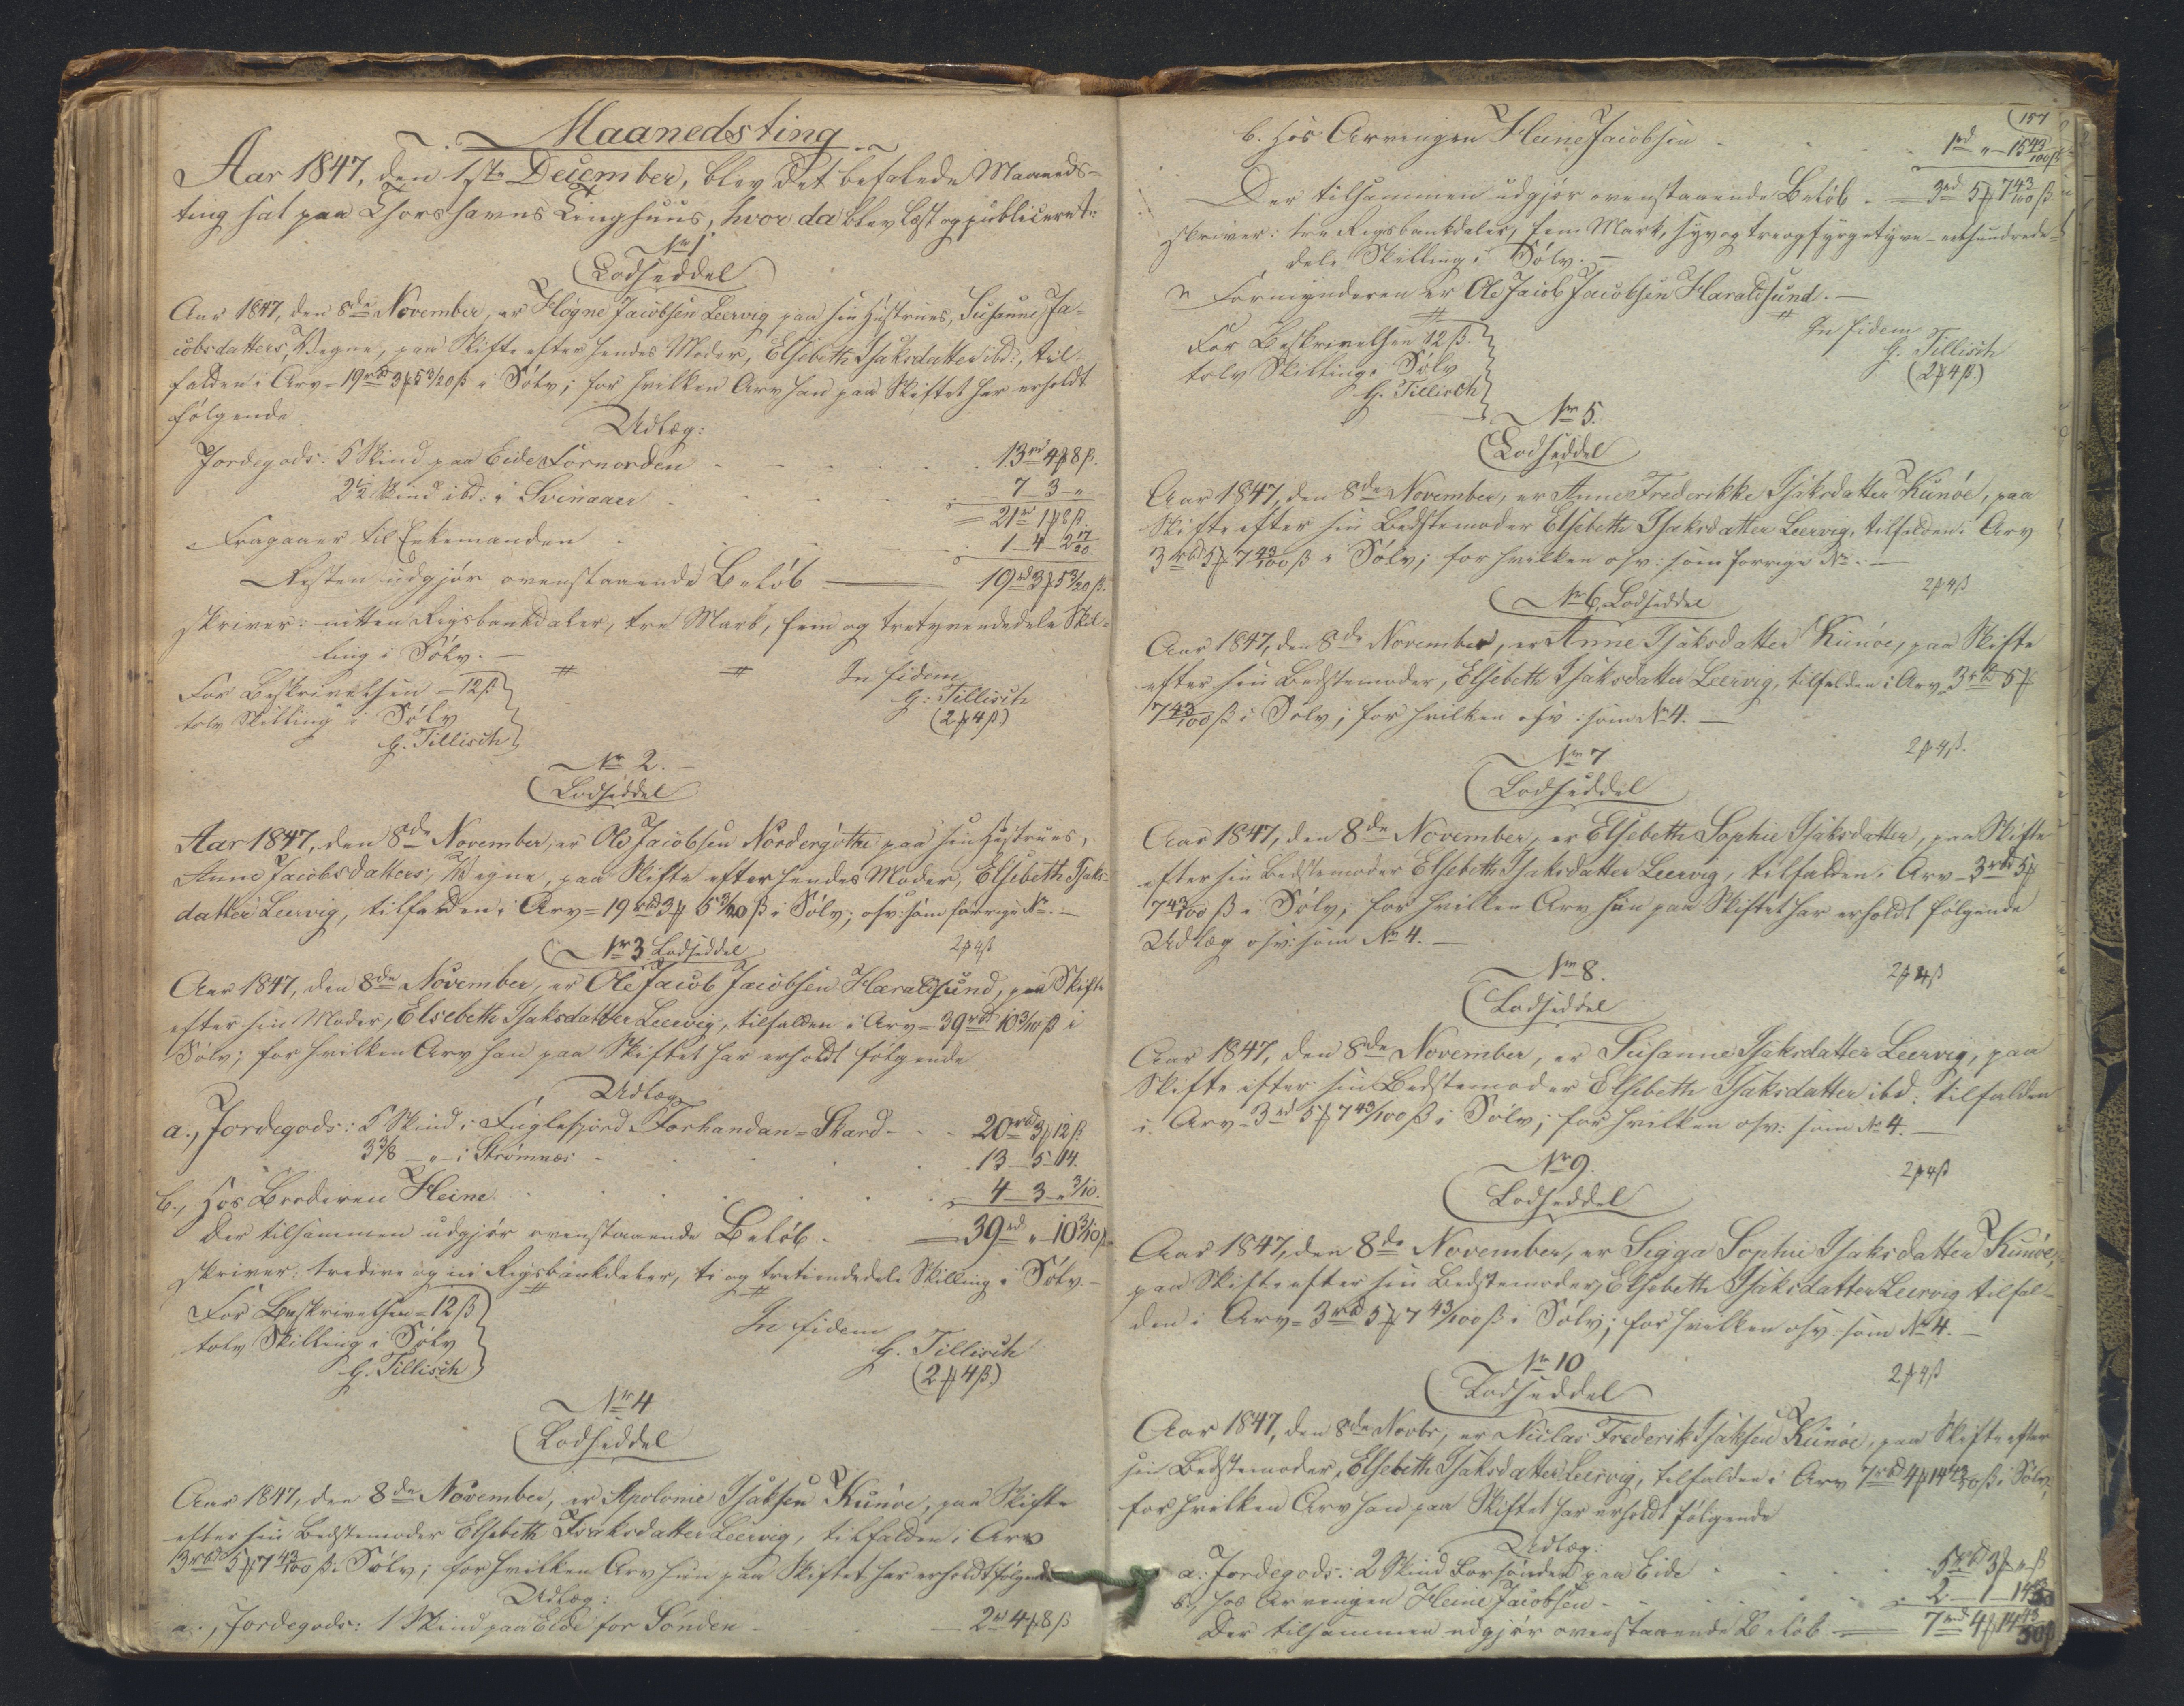 Maanedsting
Aar 1847, den 1ste December, blev det befalede Maaneds-
ting sat paa Thorshavns Tinghuus, hvor da blev læst og publiceret:
No 1
Lodseddel
Aar 1847, den 8de November, er Høgne Jacobsen Leervig paa sin Hustrues, Susanne Ja-
cobsdatters, Vegne, paa Skifte efter hendes Moder, Elsebeth Isaksdatter ibd:, til-
falden i Arv = 19rbd 3 ꝳ 5 3/20 ß i Sølv; for hvilken Arv han paa Skiftet har erholdt
følgende
Udlæg:
Jordegods: 5 Skind paa Eide Fornorden 13rd 4 ꝳ 8 ß.
2½ Skind ibd: i Svinaaer 7 – 3 – "
= 21rd 1 ꝳ 8 ß.
Fragaaer til Enkemanden 1 – 4 – 2 17/20
Resten udgjør ovenstaaende Beløb 19rd 3 ꝳ 5 3/20 ß.
skriver: nitten Rigsbankdaler, tre Mark, fem og tretyvendedele Skil-
ling i Sølv. –
In fidem
For Beskrivelsen = 12 ß
G. Tillisch
tolv Skilling i Sølv
(2 ꝳ 4 ß)
G. Tillisch
No 2. –
Lodseddel
Aar 1847, den 8de November, er Ole Jacobsen Nordergøthe paa sin Hustrues,
Anne Jacobsdatters, Vegne, paa Skifte efter hendes Moder, Elsebeth Isaks-
datter Leervig, tilfalden i Arv = 19rbd 3 ꝳ 5 3/20 ß i Sølv; osv: som forrige No. –
No 3 Lodseddel 2 ꝳ 4 ß
Aar 1847, den 8de November, er Ole Jacob Jacobsen Haraldsund, paa Skifte
efter sin Moder, Elsebeth Isaksdatter Leervig, tilfalden i Arv = 39rbd 10 3/10 ß i
Sølv; for hvilken Arv han paa Skiftet har erholdt følgende
Udlæg
a., Jordegods: 5 Skind i Fuglefjord Forhandan-Skard 20rbd 3 ꝳ 12 ß
3 3/8 – " – i Strømnæs 13 – 5 – 14.
b., hos Broderen Heine 4 – 3 – " 3/10.
Der tilsammen udgjør ovenstaaende Beløb 39rd " – 10 3/10 ß
skriver: tredive og ni Rigsbankdaler, ti og tretiendedele Skilling i Sølv –
For Beskrivelsen = 12 ß
In fidem
tolv Skilling i Sølv
G. Tillisch
G. Tillisch
(2 ꝳ 4 ß)
No 4
Lodseddel
Aar 1847, den 8de November, er Apolonie Isaksen Kunøe, paa Skifte
efter sin Bedstemoder Elsebeth Isaksdatter Leervig, tilfalden i Arv
3rbd 5 ꝳ 7 43/100 ß i Sølv; for hvilken Arv hun paa Skiftet har erholdt følgende
Udlæg:
a., Jordegods: 1 Skind paa Eide for Sønden 2rd 4 ꝳ 8 ß
157
b. hos Arvingen Heine Jacobsen 1rd " – 15 43/100 ß
Der tilsammen udgjør ovenstaaende Beløb 3rd 5 ꝳ 7 43/100 ß
skriver: tre Rigsbankdaler, fem Mark, syv og treogfyrgetyve-eethundrede-
dele Skilling i Sølv. –
Formynderen er Ole Jacob Jacobsen Haraldsund. –
In fidem
For Beskrivelsen 12 ß
G. Tillisch
tolv Skilling i Sølv
(2 ꝳ 4 ß)
G. Tillisch
No 5.
Lodseddel
Aar 1847, den 8de November, er Anne Frederikke Isaksdatter Kunøe, paa
Skifte efter sin Bedstemoder Elsebeth Isaksdatter Leervig, tilfalden i Arv
3rbd 5 ꝳ 7 43/100 ß i Sølv; for hvilken osv: som forrige No. –
No 6. Lodseddel 2 ꝳ 4 ß
Aar 1847, den 8de November, er Anne Isaksdatter Kunøe, paa Skifte
efter sin Bedstemoder, Elsebeth Isaksdatter Leervig, tilfalden i Arv 3rbd 5 ꝳ
7 43/100 ß i Sølv; for hvilken osv: som No 4. –
No 7 2 ꝳ 4 ß.
Lodseddel
Aar 1847, den 8de November, er Elsebeth Sophie Isaksdatter, paa Skifte
efter sin Bedstemoder Elsebeth Isaksdatter Leervig, tilfalden i Arv – 3rbd 5 ꝳ
7 43/100 ß i Sølv; for hvilken Arv hun paa Skiftet har erholdt følgende
Udlæg osv: som No 4. –
No 8. 2 ꝳ 4 ß
Lodseddel
Aar 1847, den 8de November, er Susanne Isaksdatter Leervig, paa
Skifte efter sin Bedstemoder Elsebeth Isaksdatter ibd: tilfalden
i Arv – 3rd 5 ꝳ 7 43/100 ß i Sølv; for hvilken osv: som No 4. –
No 9. 2 ꝳ 4 ß
Lodseddel
Aar 1847, den 8de November, er Sigga Sophie Isaksdatter Kunøe,
paa Skifte efter sin Bedstemoder, Elsebeth Isaksdatter Leervig tilfal-
den i Arv = 3rbd 5 ꝳ 7 43/100 ß i Sølv; for hvilken osv: som No 4. –
No 10 2 ꝳ 4 ß
Lodseddel
Aar 1847, den 8de Novbr, er Niclas Frederik Isaksen Kunøe, paa Skifte efter
sin Bedstemoder, Elsebeth Isaksdatter Leervig, tilfalden i Arv 7rbd 4 ꝳ 14 43/50 ß i Sølv;
for hvilken Arv han paa Skiftet har erholdt følgende
Udlæg:
a. Jordegods: 2 Skind Forsønder paa Eide 5rbd 3 ꝳ " ß
b., hos Arvingen Heine Jacobsen 2 – 1 – 14 43/50
Der tilsammen udgjør ovenstaaende Beløb 7rd 4 ꝳ 14 43/50 ß